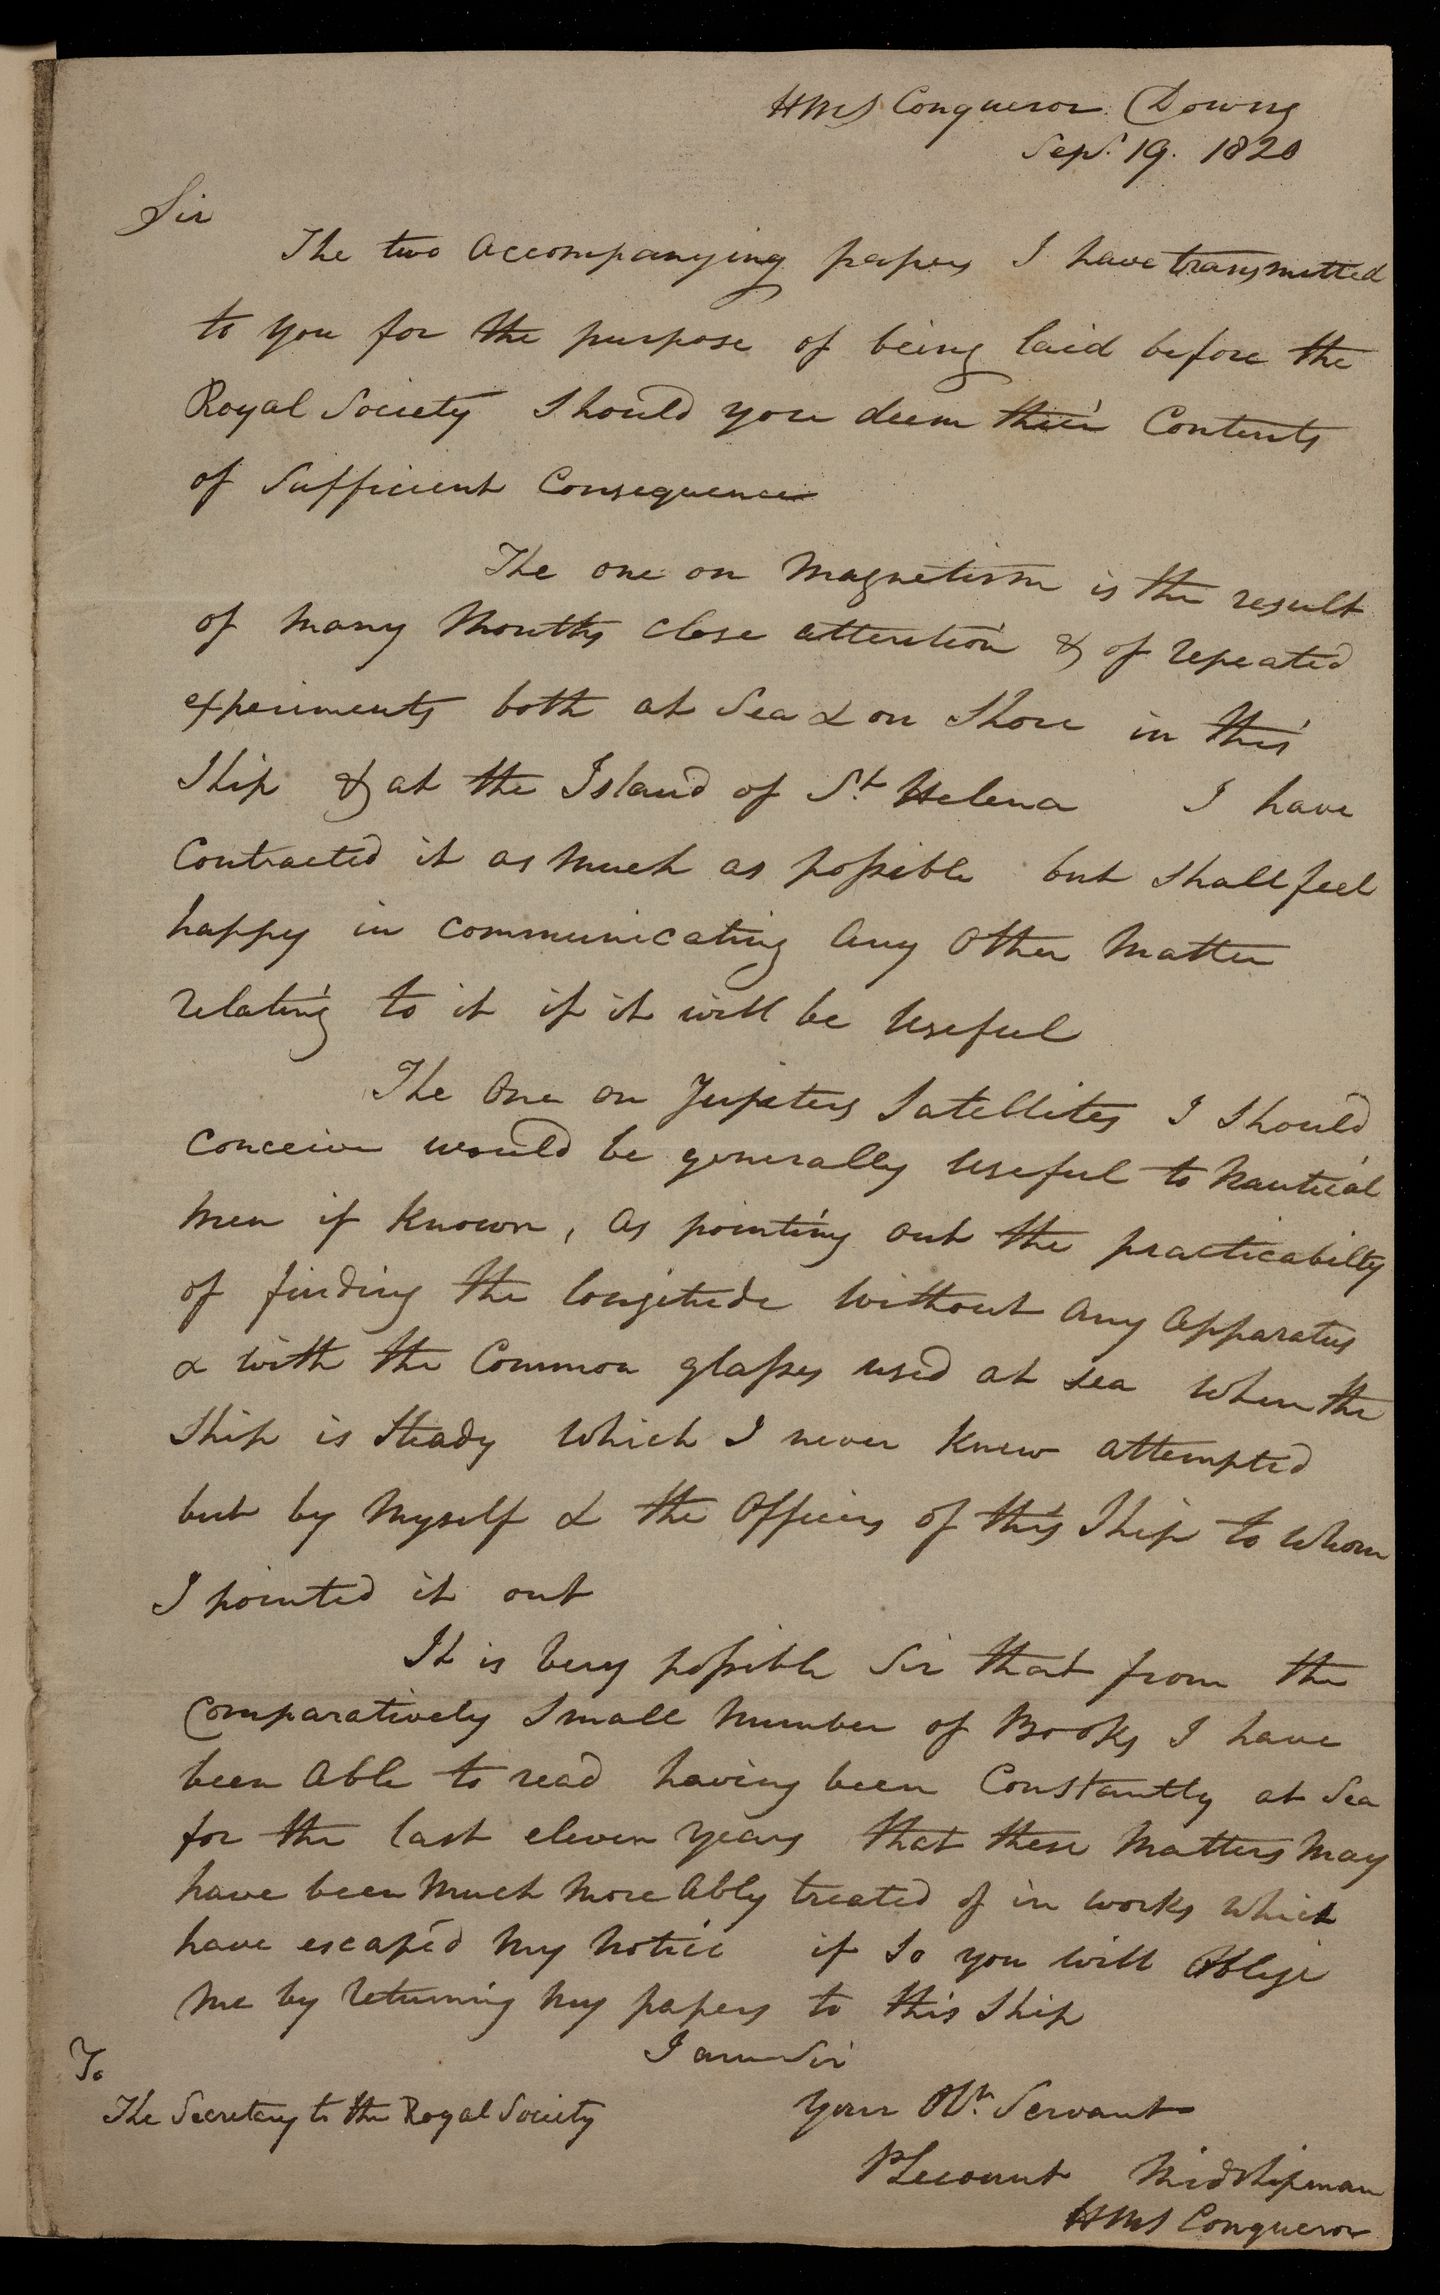 HMS Conqueror Downs
Sept. 19. 1820
Sir
The two accompanying papers I have transmitted
to you for the purpose of being laid before the
Royal Society should you deem their Contents
of sufficient Consequence
The one on Magnetism is the result
of many Months close attention & of repeated
experiments both at Sea & on Shore in this
Ship & at the Island of St. Helena I have
Contracted it as much as possible but shall feel
happy in communicating any other Matter
relating to it if it will be useful
The One on Jupiters Satellites I should
conceive would be generally useful to Nautical
Men if known, as pointing out the practicabilty
of finding the longitude without any apparatus
& with the Common glasses used at sea when the
Ship is steady which I never knew attempted
but by Myself & the Officers of this Ship to whom
I pointed it out
It is very possible Sir that from the
Comparatively small Number of Books I have
been able to read having been Constantly at Sea
for the last eleven years that these Matters may
have been much more ably treated of in works which
have escaped my notice if so you will oblige
me by returning my papers to this Ship
I am Sir
Your Obt. Servant
P Lecount Midshipman
HMS Conqueror
To
The Secretary to the Royal Society